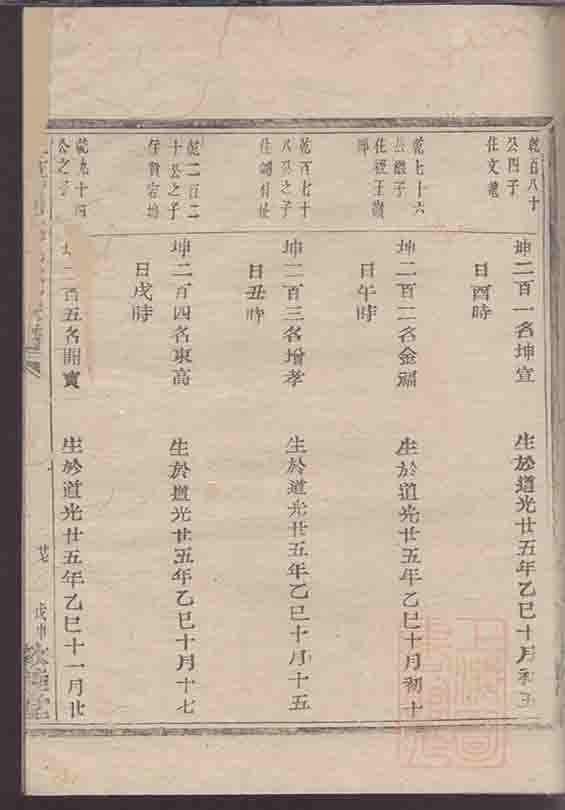 乾百八十
公四子
住文
坤二百一名坤宣
生於道光廿五年乙巳十月初五
日酉時
乾七十六
公繼子
坤二百二名金福
生於道光廿五年乙巳十月初十
日午時
乾百七十
八公之子
坤二百三名增孝
生於道光廿五年乙巳十月十五
日丑時
乾二百二
十公之子
坤二百四名東高
生於道光廿五年乙巳十月十七
日戌時
乾九十四
公之子
坤二百五名開寶
生於道光廿五年乙巳十一月廿
戊申